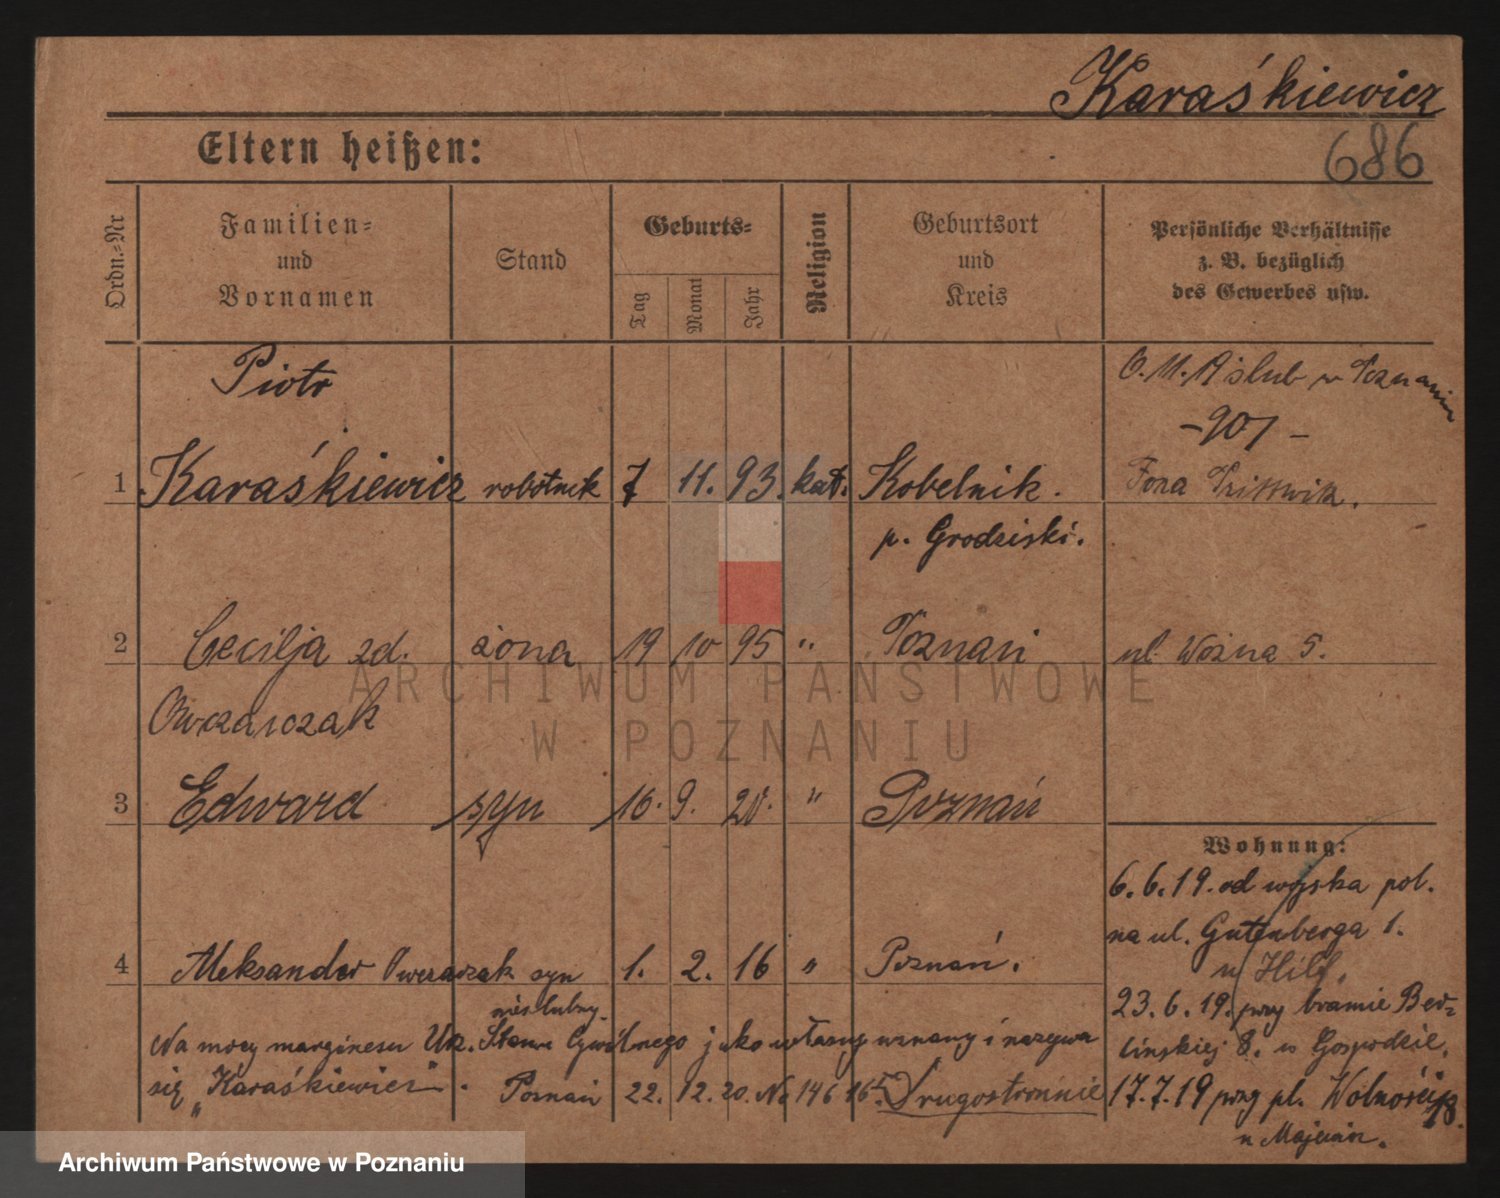 Karaśkiewicz
686
Eltern heißen:
Ordn.-Nr
Familien-
und
Vornamen
Stand
Geburts-
Tag
Monat
Jahr
Religion
Geburtsort
und
Kreis
Persönliche Verhältnisse
z. B. bezüglich
des Gewerbes usw.
Piotr
1 Karaśkiewicz robotnik 7 11. 93. kat. Kobelnik.
p. Grodziski.
ślub w Poznaniu
Żona
2 Cecilja zd. żona 19 10 95 " Poznań ul. Woźna 5.
Owczarczak
3 Edward syn 16. 9. 20. " Poznań
Wohnung:
6.6.19. od wojska pol.
na ul. Gutenberga 1.
u Hilf.
4 Aleksander Owczarczak syn 1. 2. 16 " Poznań.
nieślubny.
23.6.19. przy bramie Ber-
lińskiej 8. w Gospodzie.
Na mocy marginesu Urz. Stanu Cywilnego jako własny uznany i nazywa
się "Karaśkiewicz". Poznań 22. 12. 20. No 146 Drugostronnie
17.7.19 przy pl. Wolności 18.
u Majewicz.
ARCHIWUM PAŃSTWOWE
W POZNANIU
Archiwum Państwowe w Poznaniu